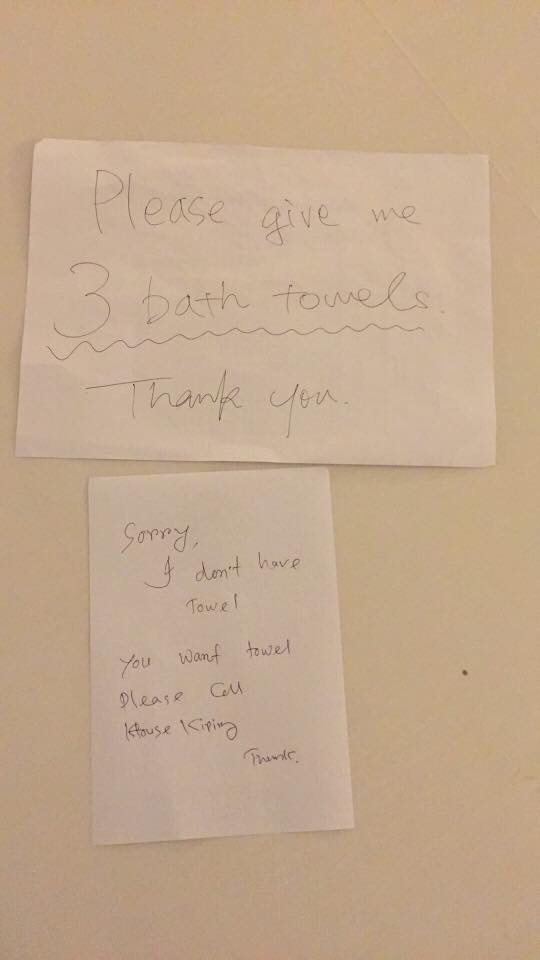 Please give me
3 bath towels.
Thank you.
Sorry,
I don't have
Towel
You want towel
Please Call
House Kiping
Thanks.